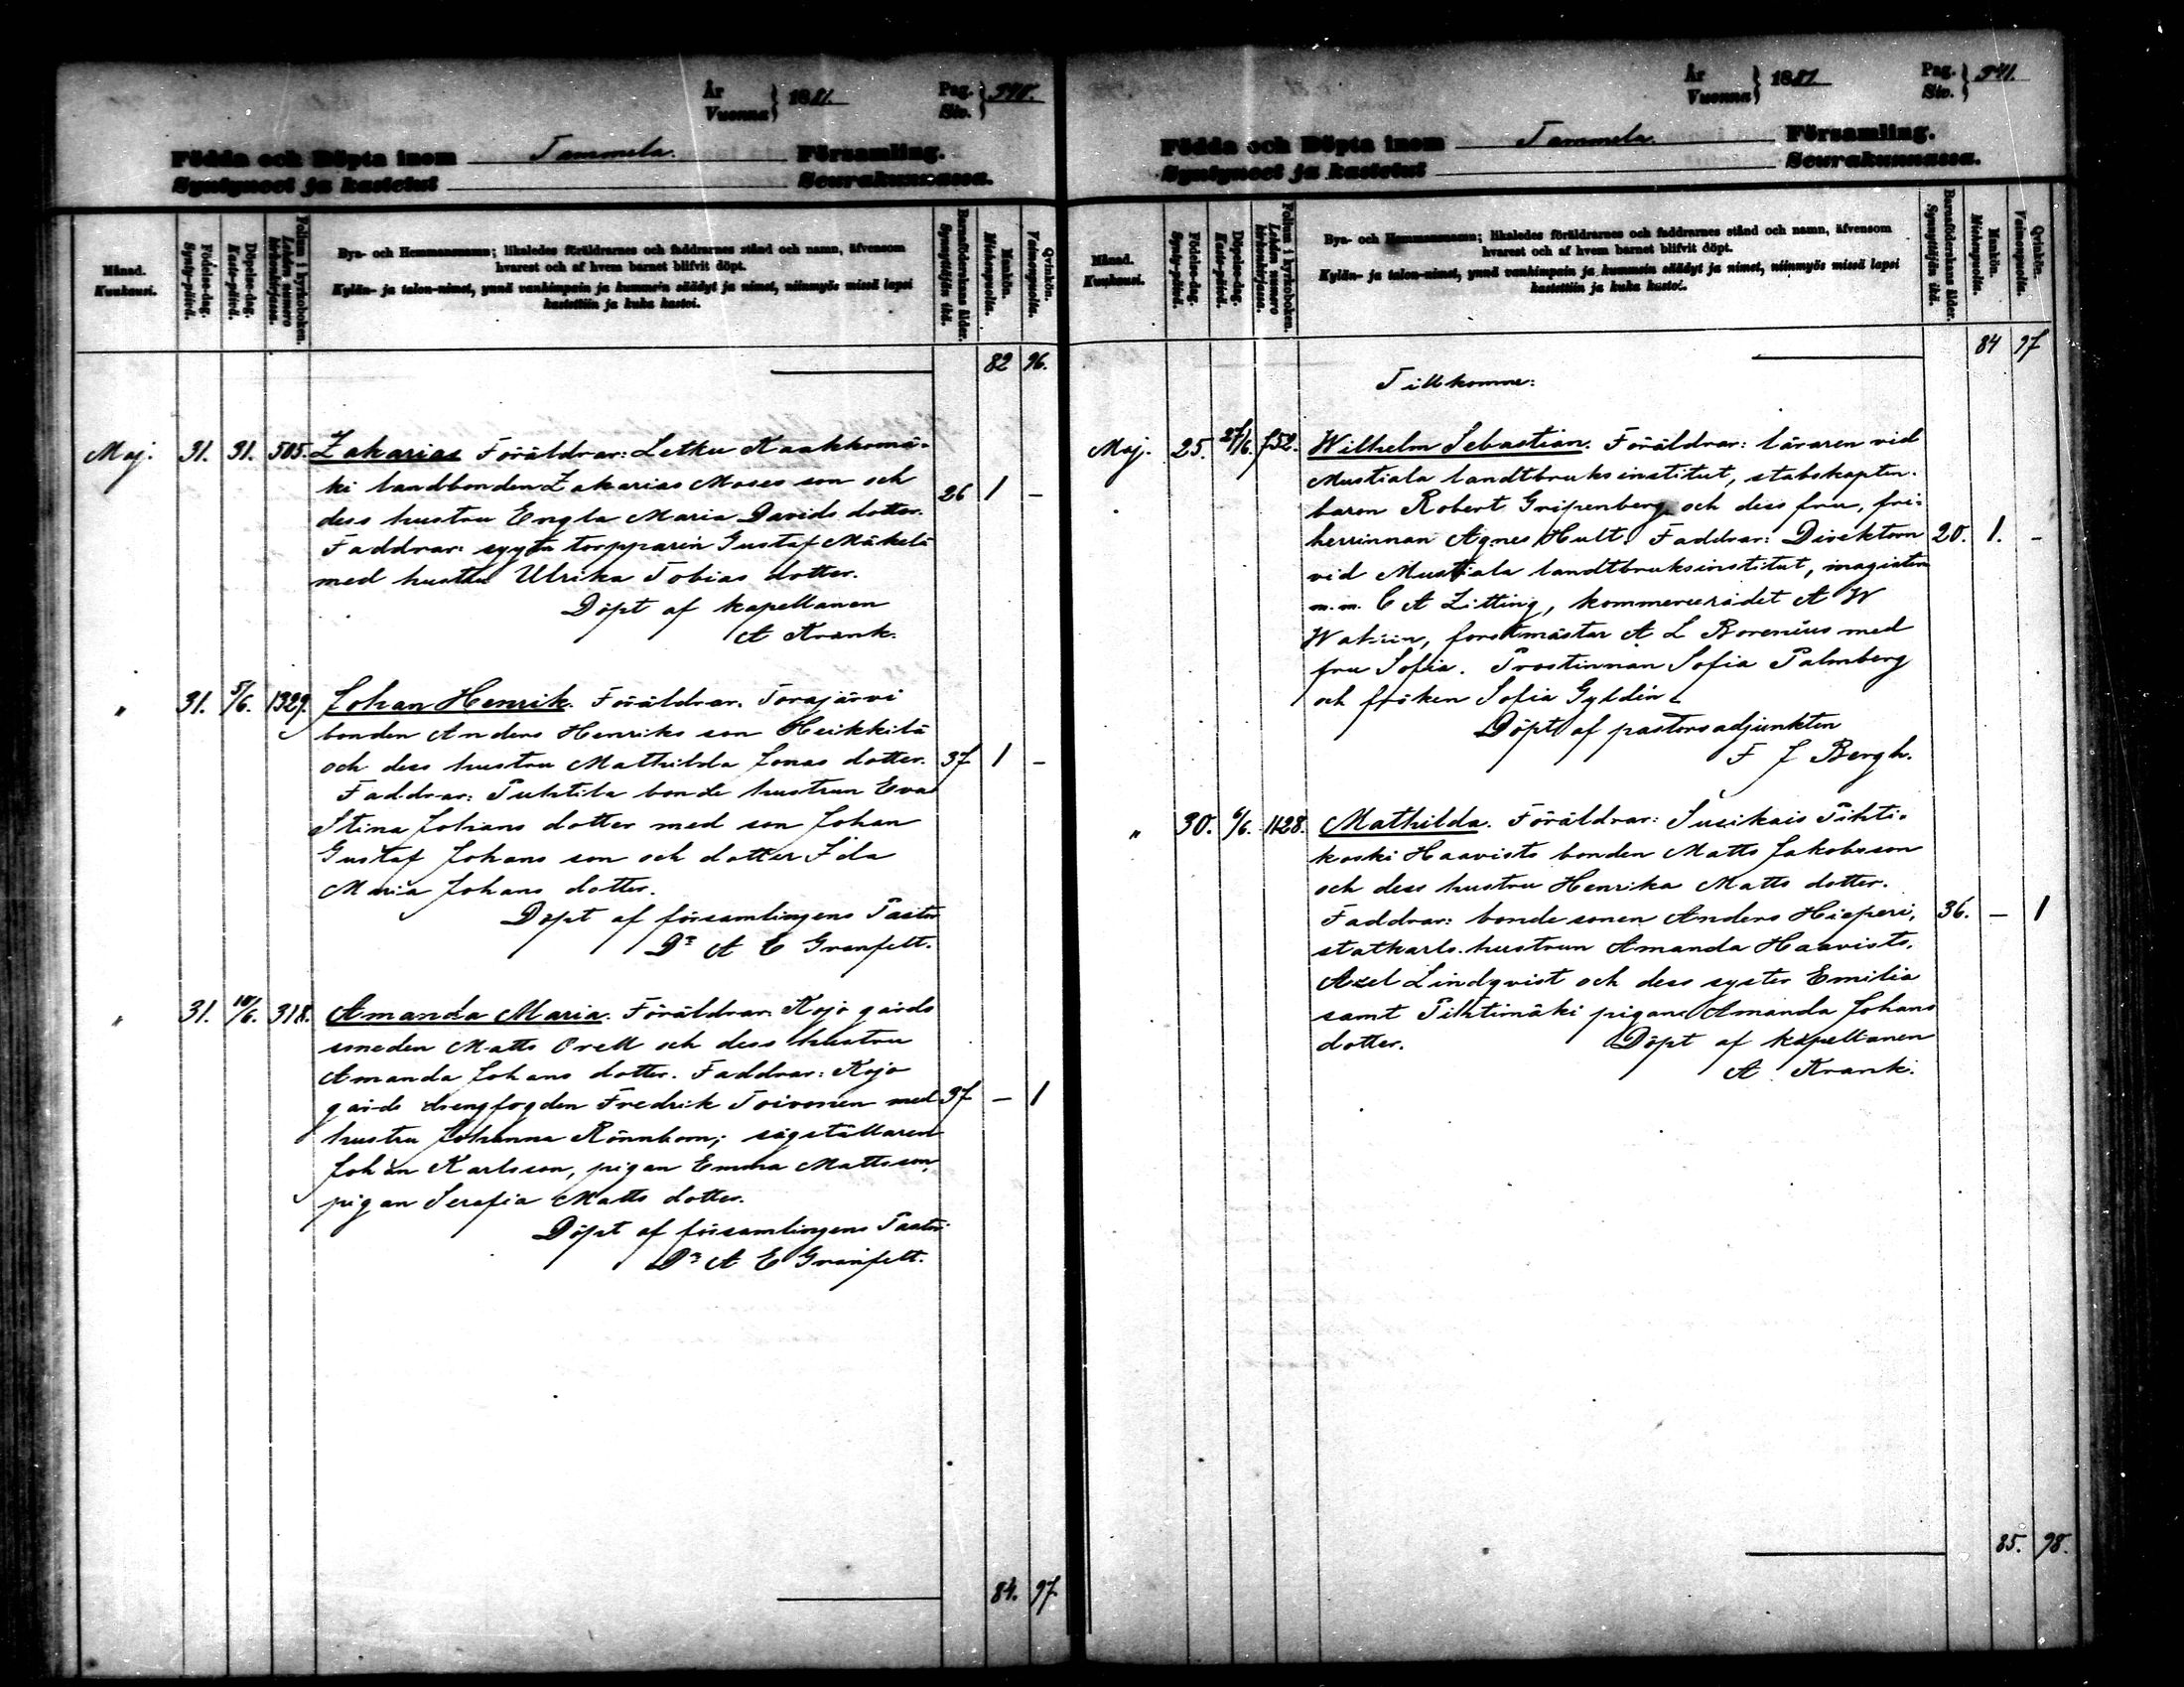 År
Vuonna } 1881.
Pag.
Siv. } 340.
Födda och Döpta inom Tammela. Församling.
Syntyneet ja kastetut Seurakunnassa.
Månad.
Kuukausi.
Födelse-dag.
Synty-päivä.
Döpelse-dag.
Kaste-päivä.
Folium i kyrkoboken.
Lehden numero kirkonkirjassa.
Bya- och Hemmansnamn; likaledes föräldrarnes och faddrarnes stånd och namn, äfvensom
hvarest och af hvem barnet blifvit döpt.
Kylän- ja talon-nimet, ynnä vanhimpain ja kummein säädyt ja nimet, niinmyös missä lapsi
kastettiin ja kuka kastoi.
Barnaföderskans ålder.
Synnyttäjän ikä.
Mankön.
Miehenpuolia.
Qvinkön.
Vaimonpuolia.
82 96.
Maj. 31. 31. 505. Zakarias Föräldrar: Letku Kaukkomä-
ki landbonden Zakarias Moses son och 26 1 –
dess hustru Engla Maria Davids dotter.
Faddrar: sytn torpparen Gustaf Mäkelä
med hustru Ulrika Tobias dotter.
Döpt af kapellanen
A Krank.
" 31. 5/6. 1329. Johan Henrik. Föräldrar. Torajärvi
bonden Anders Henriks son Heikkilä
och dess hustru Mathilda Jonas dotter. 37 1 –
Faddrar: Puhtila bonde hustrun Eva
Stina Johans dotter med son Johan
Gustaf Johans son och dotter Ida
Maria Johans dotter.
Döpt af församlingens Pastor
Dr A E Granfelt.
" 31. 10/6. 318. Amanda Maria. Föräldrar. Kojo gårds
smeden Matts Orell och dess hustru
Amanda Johans dotter. Faddrar: Kojo
gårds drengfogden Fredrik Toivonen med 37 – 1
hustru Johanna Rönnbom; sågställaren
Johan Karlsson, pigan Emma Mattsson,
pigan Serafia Matts dotter.
Döpt af församlingens Pastor
Dr A E Granfelt.
84. 97
År
Vuonna } 1881
Pag.
Siv. } 341.
Födda och Döpta inom Tammela. Församling.
Syntyneet ja kastetut Seurakunnassa.
Månad.
Kuukausi.
Födelse-dag.
Synty-päivä.
Döpelse-dag.
Kaste-päivä.
Folium i kyrkoboken.
Lehden numero kirkonkirjassa.
Bya- och Hemmansnamn; likaledes föräldrarnes och faddrarnes stånd och namn, äfvensom
hvarest och af hvem barnet blifvit döpt.
Kylän- ja talon-nimet, ynnä vanhimpain ja kummein säädyt ja nimet, niinmyös missä lapsi
kastettiin ja kuka kastoi.
Barnaföderskans ålder.
Synnyttäjän ikä.
Mankön.
Miehenpuolia.
Qvinkön.
Vaimonpuolia.
84 97
Tillkomne:
Maj. 25. 27/6. 752. Wilhelm Sebastian. Föräldrar: läraren vid
Mustiala landtbruksinstitut, stabskapten.
baron Robert Gripenberg och dess fru, fri-
herrinnan Agnes Hult. Faddrar: Direktorn 20. 1. –
vid Mustiala landtbruksinstitut, magistern
m.m. C A Zitting, kommerserådet A W
Wahrén, forstmästar A L Borenius med
fru Sofia. Prostinnan Sofia Palmberg
och fröken Sofia Gyldén
Döpt af pastorsadjunkten
F J Bergh.
" 30. 6/6. 1128. Mathilda. Föräldrar: Susikais Pihti-
koski Haavisto bonden Matts Jakobsson
och dess hustru Henrika Matts dotter.
Faddrar: bonde sonen Anders Hieperi, 36. – 1
statkarls hustrun Amanda Haavisto.
Axel Lindqvist och dess syster Emilia
samt Pihtimäki pigan Amanda Johans
dotter. Döpt af kapellanen
A Krank.
85. 98.